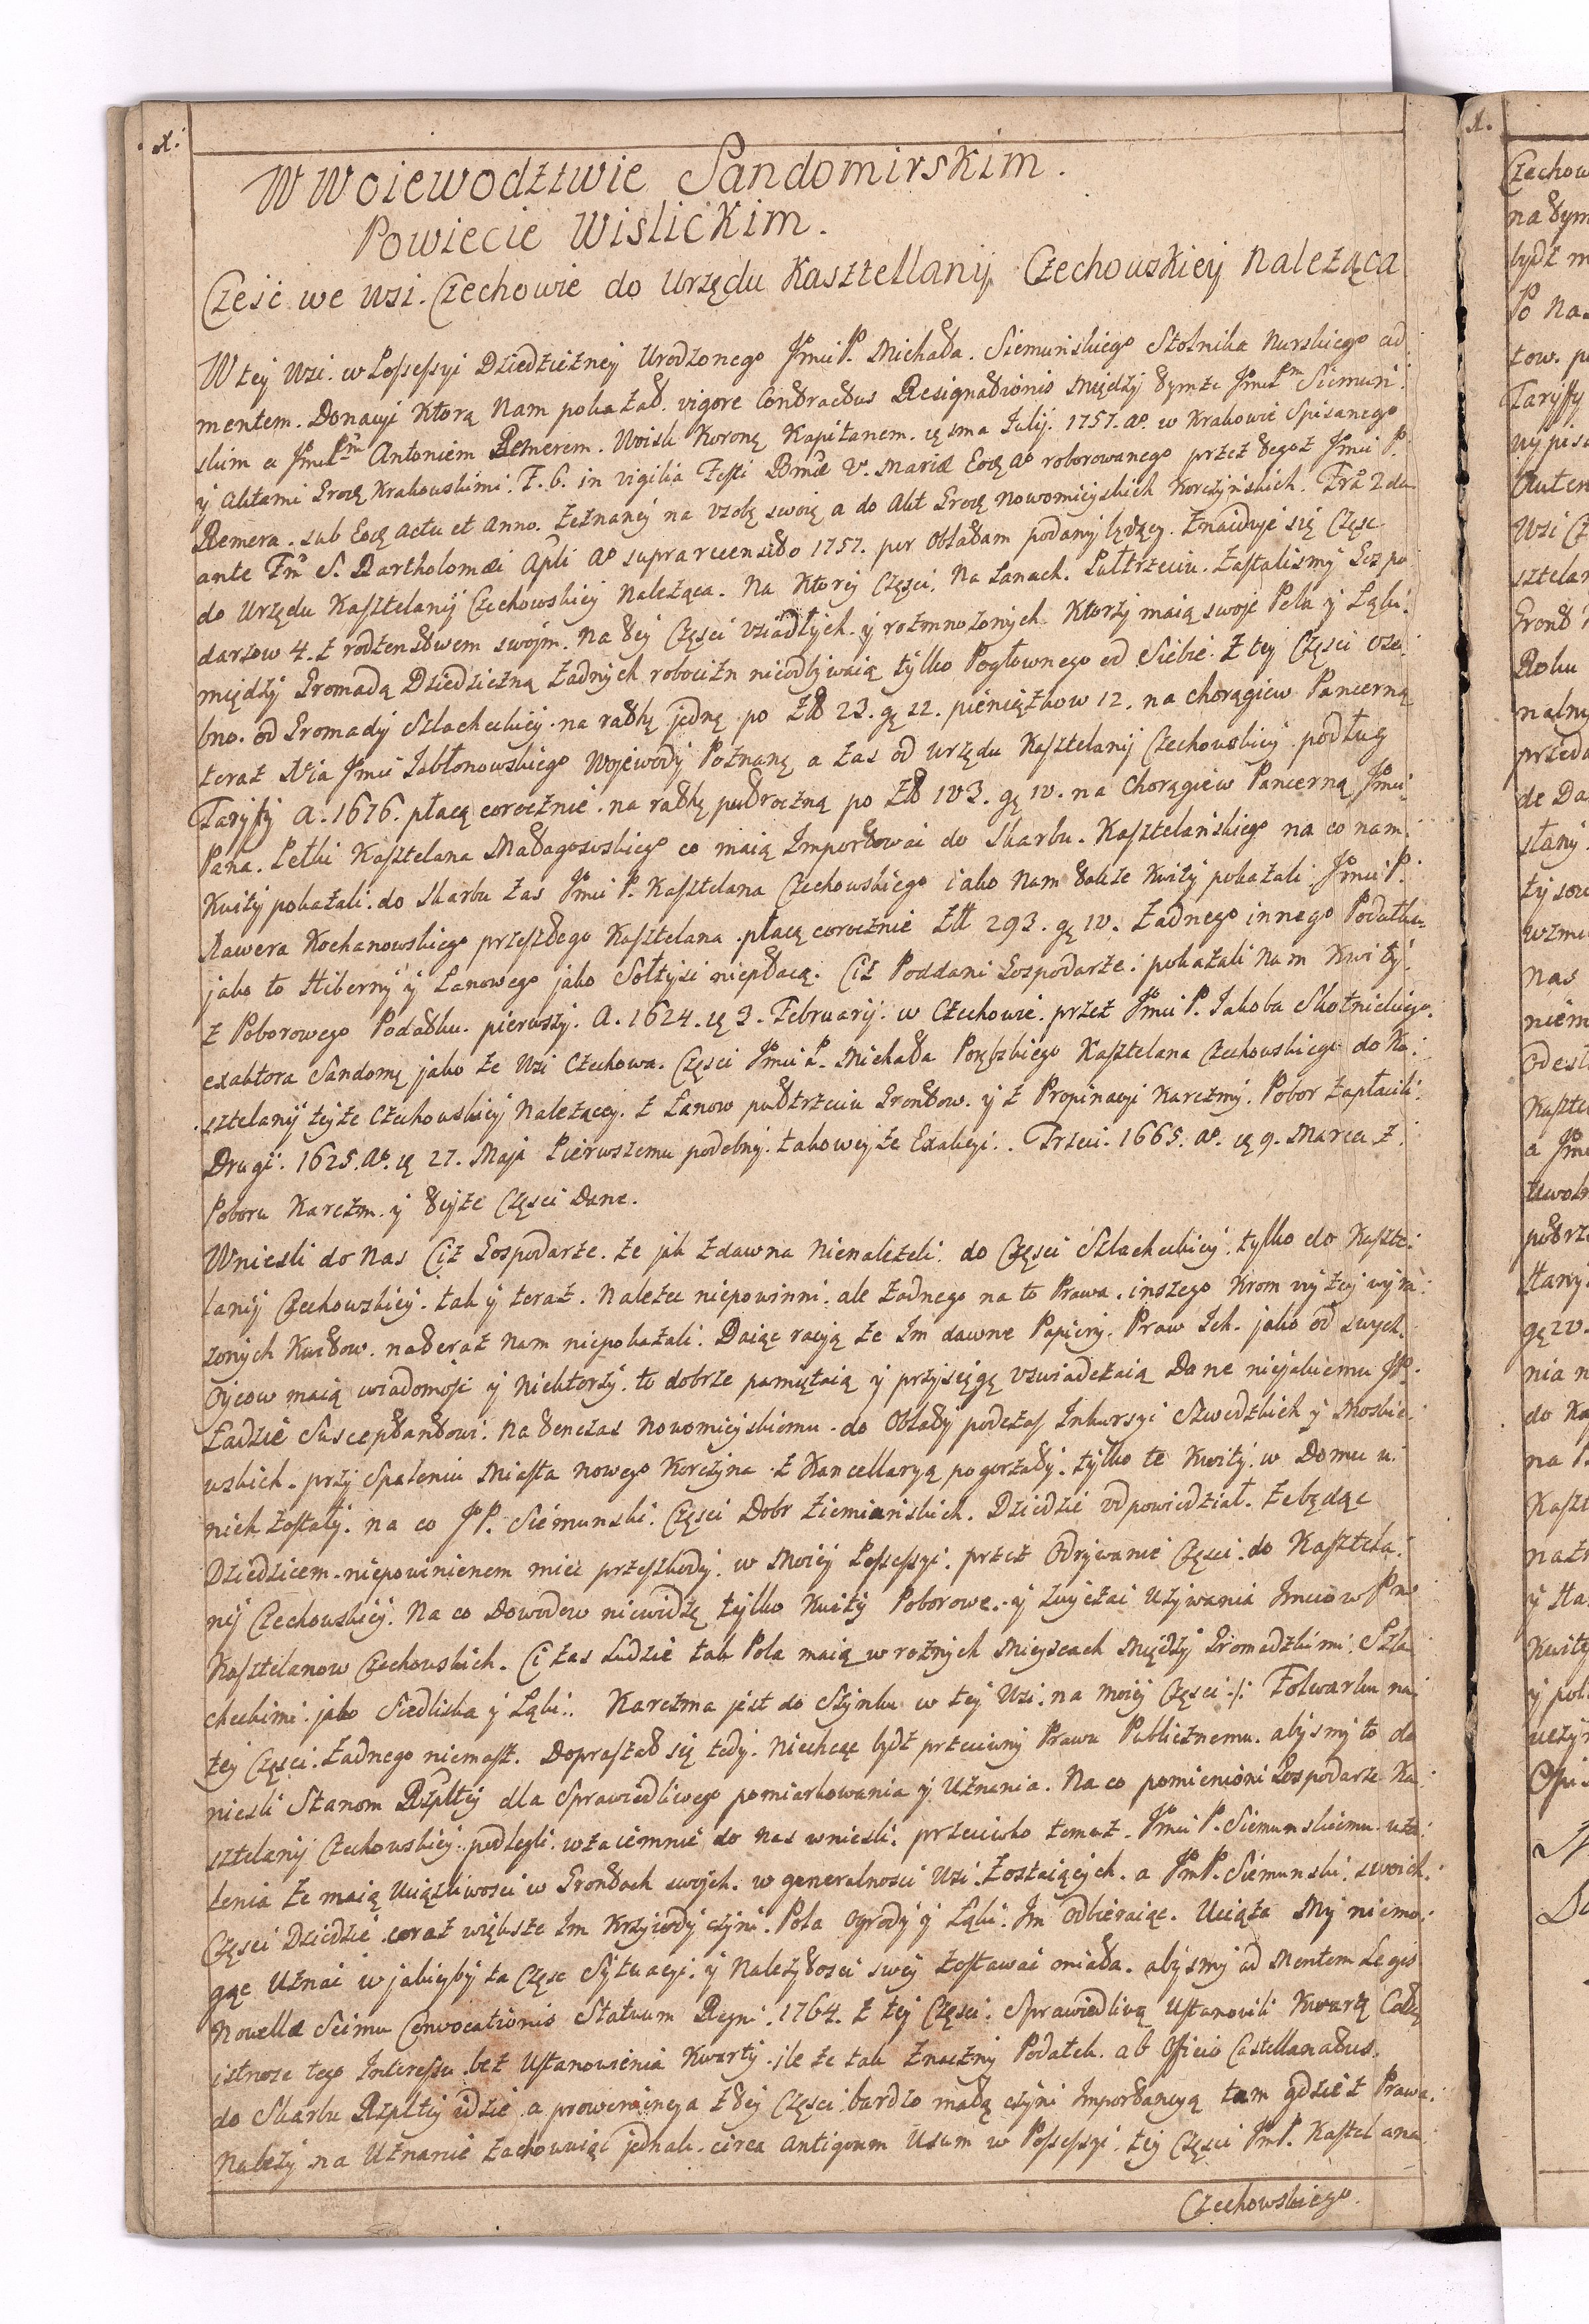 X.
W Woiewodztwie Sandomirskim.
Powiecie Wislickim.
Częsc we wsi. Czechowie do Urzędu Kasztellanij Czechowskiey Należąca
W tey Wsi. w Possessyi Dziedziczney Urodzonego Jmći P. Michała. Siemuńskiego Stolnika Nurskiego ad
mentem. Donacyi Ktorą Nam pokazał. vigore Contractus Resignationis między tymże Jmć Pm Siemuń.
skim a Jmć Pm Antoniem Remerem. Woisk Koronę Kapitanem. ię sma Julij. 1757. ao. w Krakowie Spisanego
ij Aktami Grodę Krakowskimi. F. 6. in vigilia Festi Bmæ V. Mariæ Eoę ao roborowanego przez tegoż Jmći P.
Remera. sub Eoę actu et Anno. Zeznaney na Osobę swoię a do Akt Grodę Nowomieyskich Korczyńskich. Fra 2da
ante Fm S. Bartholomæi Apli ao supra recensito 1757. per Oblatam podany będący. Znaiduje się Częsc
do Urzędu Kasztelanij Czechowskiey Należąca. Na Ktorey Częsci. Na Łanach. Pułtrzeciu. Zastalismy Gospo
darzow 4. z rodzenstwem swojm. na tey Częsci Osiadłych. ij rozmnożonych Ktorzy maią swoje Pola y Łąki.
między Gromadą Dziedziczną Żadnych robocizn nieodbywaią tylko Pogłownego od Siebie. z tey Częsci oso.
bno. od Gromady Szlacheckiey na ratkę jednę po Zł 23. gę 22. pieniężkow 12. na chorągiew Pancerną
teraz Nia Jmći Jabłonowskiego Wojewody Poznanę a zas od urzędu Kasztelanij Czechowskiey podług
Taryfy A. 1676. płacą corocznie. na ratkę pułroczną po Zł 103. gę 10. na Chorągiew Pancerną Jmći
Pana. Pełki Kasztelana Małagoskiego co maią Importowac do Skarbu. Kasztelańskiego na co nam.
Kwity pokazali. do skarbu zas Jmći P. Kasztelana Czechowskiego iako Nam także Kwity pokazali Jmći P.
Xawera Kochanowskiego przeszłego Kasztelana. płacę corocznie Złł 293. gę 10. Żadnego innego Podatku
jako to Hiberny y Łanowego jako Sołtysi niepłacą. Ciż Poddani Gospodarze. pokazali Nam Kwity.
z Poborowego Podatku. pierwszy. A. 1624. ię 3. February. w Czechowie. przez Jmći P. Jakoba Skotnickiego.
exaktora Sandomę jako ze Wsi Czechowa. Częsci Jmći P. Michała Porębskiego Kasztelana Czechowskiego do Ka.
sztelanij teyże Czechowskiey Należącey. z Łanow pułtrzeciu Grontow. y z Propinacyi Karczmy. Pobor zapłacili.
Drugi. 1625. Ao. ię 27. Maja Pierwszemu podobny. takoweyże Exakcyi. Trzeci. 1665. ao. ię 9. Marca z.
Poboru Karczm. y teyże Częsci Dane.
Wniesli do Nas Ciż Gospodarze. że jak zdawna Nienależeli. do Częsci Szlacheckiey. tylko do Kaszte.
lanij Czechowskiey. tak y teraz. Należec niepowinni. ale żadnego na to Prawa. inszego Krom wyżey wyra.
żonych Kwitow. nateraz Nam niepokazali. Daiąc racyą że Im dawne Papiery. Praw Ich. jako od swych.
Oycow maią wiadomosc y Niektorzy. to dobrze pamiętaią y przysięgę oswiadczaią Dane niejakiemu JP.
Ładzie Susceptantowi. Na tenczas Nowomieyskiemu. do Oblaty podczas Inkursyi Szwedzkich y Moskie.
wskich. przy Spaleniu Miasta Nowego Korczyna. z Kancellaryą pogorzały. tylko te Kwity. w Domu u.
nich zostały. na co JP. Siemunski. Częsci Dobr Ziemiańskich. Dziedzic odpowiedział. że będąc
Dziedzicem. niepowinienem miec przeszkody. w Moiey Possessyi. przez Odrywanie Częsci. do Kasztela.
nij Czechowskiey. Na co Dowodow niewidzę tylko Kwity Poborowe. y zwyczai Używania Imciow Pm
Kasztelanow Czechowskich. Ci zas Ludzie tak Pola maią w rożnych Mieyscach Między Gromadzkimi. Szla
checkimi. jako Siedliska y Łąki. Karczma jest do Szynku w tey Wsi. na moiey Częsci ·/· Folwarku na
tey Częsci. żadnego niemasz. Dopraszał się tedy. Niechcąc bydz przeciwny Prawu Publicznemu. abysmy to do
niesli Stanom Rzpltey dla Sprawiedliwego pomiarkowania y Uznania. Na co pomienioni Gospodarze Ka.
sztelanij Czechowskiey. podlegli. wzaiemnie do Nas wniesli. przeciwko temuż. Jmći P. Siemunskiemu. uża.
lenia że maią Uciążliwosci w Grontach swojch. w generalnosci Wsi. Zostaiących. a JmP. Siemunski. swoich.
Częsci Dziedzic coraz większe Im Krzywdy czyni. Pola Ogrody y Łąki. Im Odbieraiąc. Uciąża My niemo.
gąc Uznac w jakieyby ta Częsc Sytuacyi. y Należytosci swey zostawac miała. abysmy ad Mentem Legis
Novellæ Seimu Convocationis Statuum Regni. 1764. z tey Częsci. Sprawiedliwą Ustanowili Kwartę Całą
istnose tego Interessu bez Ustanowienia Kwarty. ile że tak Znaczny Podatek. ab Officio Castellanatus.
do Skarbu Rzpltey idzie a prowenineya z tey Częsci bardzo małą czyni Importancyą tam gdzie z Prawa.
Należy na Uznanie Zachowuiąc jednak. circa antiquum Usum w Possessyi. tey Częsci JmP. Kasztelana
Czechowskiego.